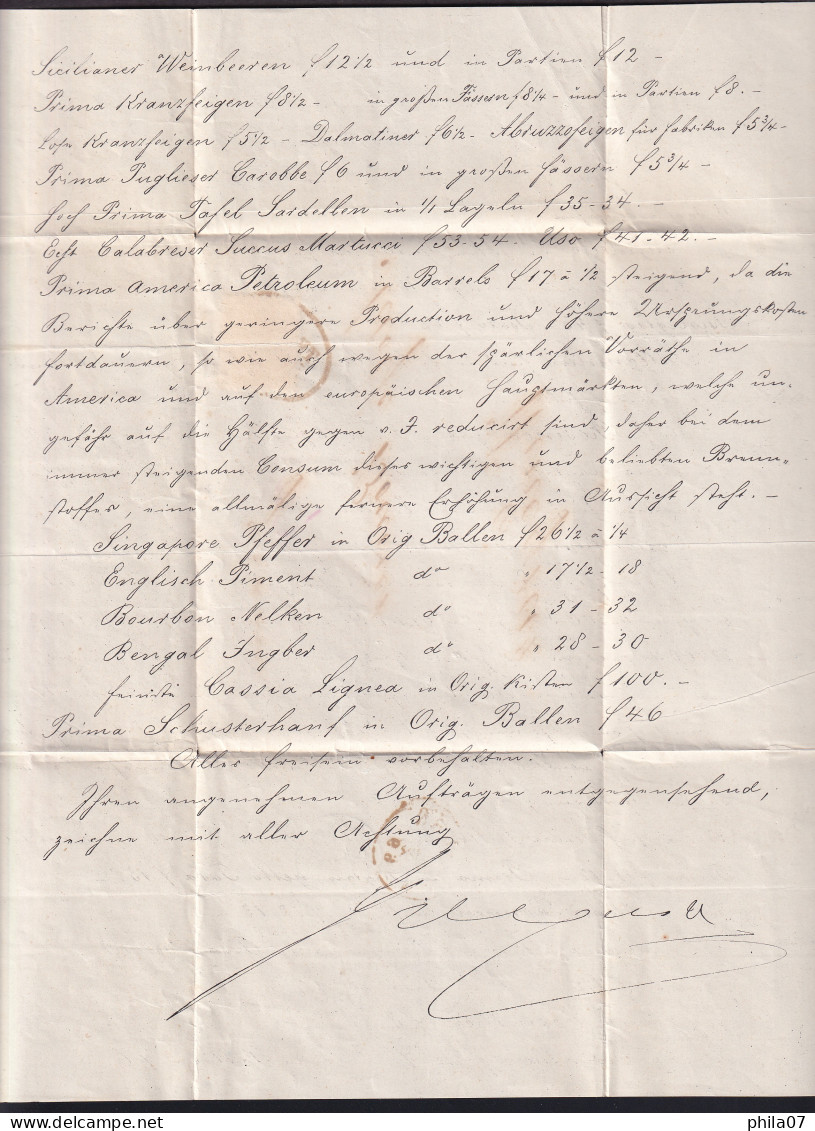 Sicilianer Weinbeeren f 12 1/2 und in Partien f 12 —
Prima Kranzfeigen f 8 1/2 — in großen Fässern f 8 1/4 — und in Partien f 8. —
Lose Kranzfeigen f 5 1/2 — Dalmatiner f 6 1/2 — Abruzzofeigen für Fabriken f 5 3/4 —
Prima Puglieser Carobbe f 6 und in großen Fässern f 5 3/4 —
Hoch Prima Tafel Sardellen in 1/1 Lageln f 35-34. —
Echt Calabreser Succus Martucci f 53-54. Uso f 41-42. —
Prima America Petroleum in Barrels f 17 à 1/2 steigend, da die
Berichte über geringere Production und höhere Ursprungskosten
fortdauern, so wie auch wegen der spärlichen Vorräthe in
America und auf den europäischen Hauptmärkten, welche un-
gefähr auf die Hälfte gegen v. J. reducirt sind, daher bei dem
immer steigenden Consum dieses wichtigen und beliebten Brenn-
stoffes, eine allmälige fernere Erhöhung in Aussicht steht. —
Singapore Pfeffer in Orig Ballen f 26 1/2 à 1/4
Englisch Piment do " 17 1/2 - 18
Bourbon Nelken do " 31 - 32
Bengal Ingber do " 28 - 30
feinste Cassia Lignea in Orig. Kisten f 100. —
Prima Schusterhanf in Orig. Ballen f 46
Alles freisein vorbehalten.
Ihren angenehmen Aufträgen entgegensehend,
zeichne mit aller Achtung
www.delcampe.net
phila07